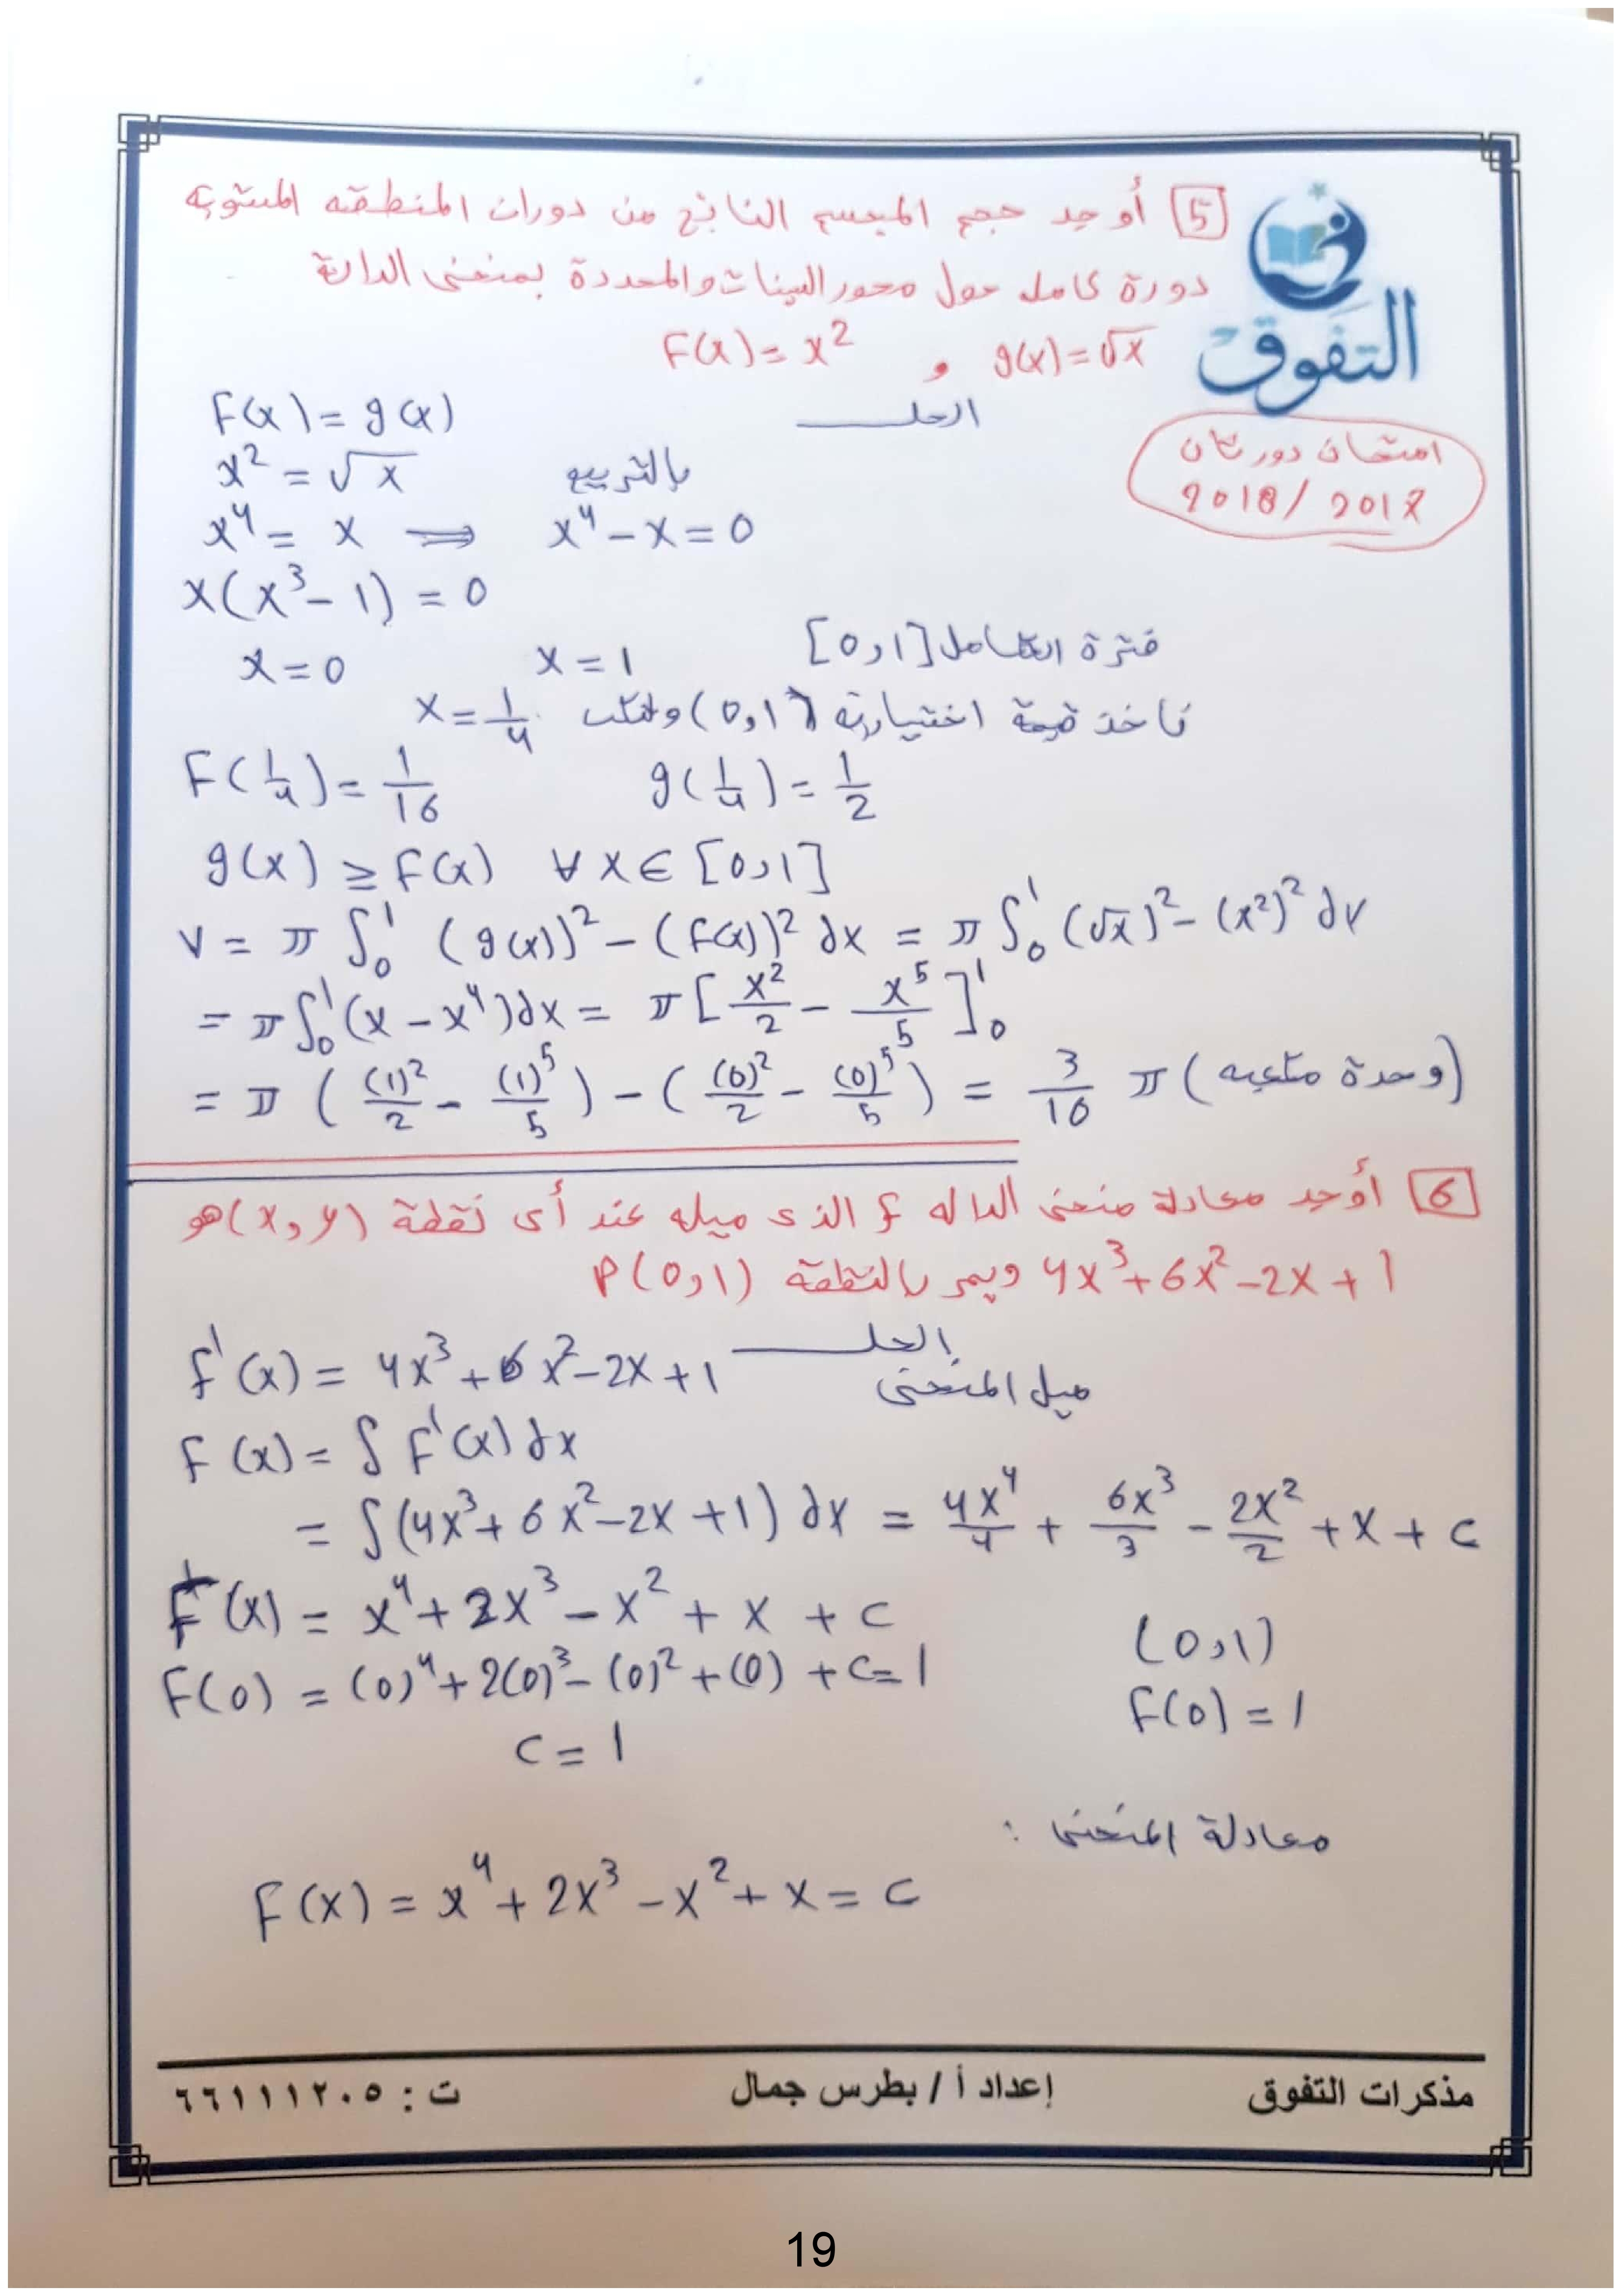 5 أوجد حجم المجسم الناتج من دوران المنطقه المستويه
دورة كامله حول محور السينات والمحددة بمنحنى الدالة
F(x) = x² , g(x) = √x
التفوق
امتحان دور ثان
2018 / 2017
الحل
F(x) = g(x)
x² = √x بالتربيع
x⁴ = x ⟹ x⁴ − x = 0
x(x³ − 1) = 0
x = 0 x = 1 فترة التكامل [0,1]
ناخذ قيمة اختياريه (0,1) ولتكن x = 1/4
F(1/4) = 1/16 g(1/4) = 1/2
g(x) ≥ F(x) ∀ x ∈ [0,1]
V = π ∫₀¹ (g(x))² − (F(x))² dx = π ∫₀¹ (√x)² − (x²)² dx
= π ∫₀¹ (x − x⁴) dx = π [x²/2 − x⁵/5]₀¹
= π ((1)²/2 − (1)⁵/5) − ((0)²/2 − (0)⁵/5) = 3/10 π (وحدة مكعبه)
6 أوجد معادلة منحنى الداله f الذى ميله عند أى نقطة (x,y) هو
4x³ + 6x² − 2x + 1 ويمر بالنقطة P(0,1)
الحل
f'(x) = 4x³ + 6x² − 2x + 1 ميل المنحنى
F(x) = ∫ F'(x) dx
= ∫ (4x³ + 6x² − 2x + 1) dx = 4x⁴/4 + 6x³/3 − 2x²/2 + x + c
F(x) = x⁴ + 2x³ − x² + x + c
(0,1)
F(0) = (0)⁴ + 2(0)³ − (0)² + (0) + c = 1
F(0) = 1
c = 1
معادلة المنحنى :
F(x) = x⁴ + 2x³ − x² + x = c
مذكرات التفوق إعداد أ / بطرس جمال ت : ٦٦١١١٢٠٥
19